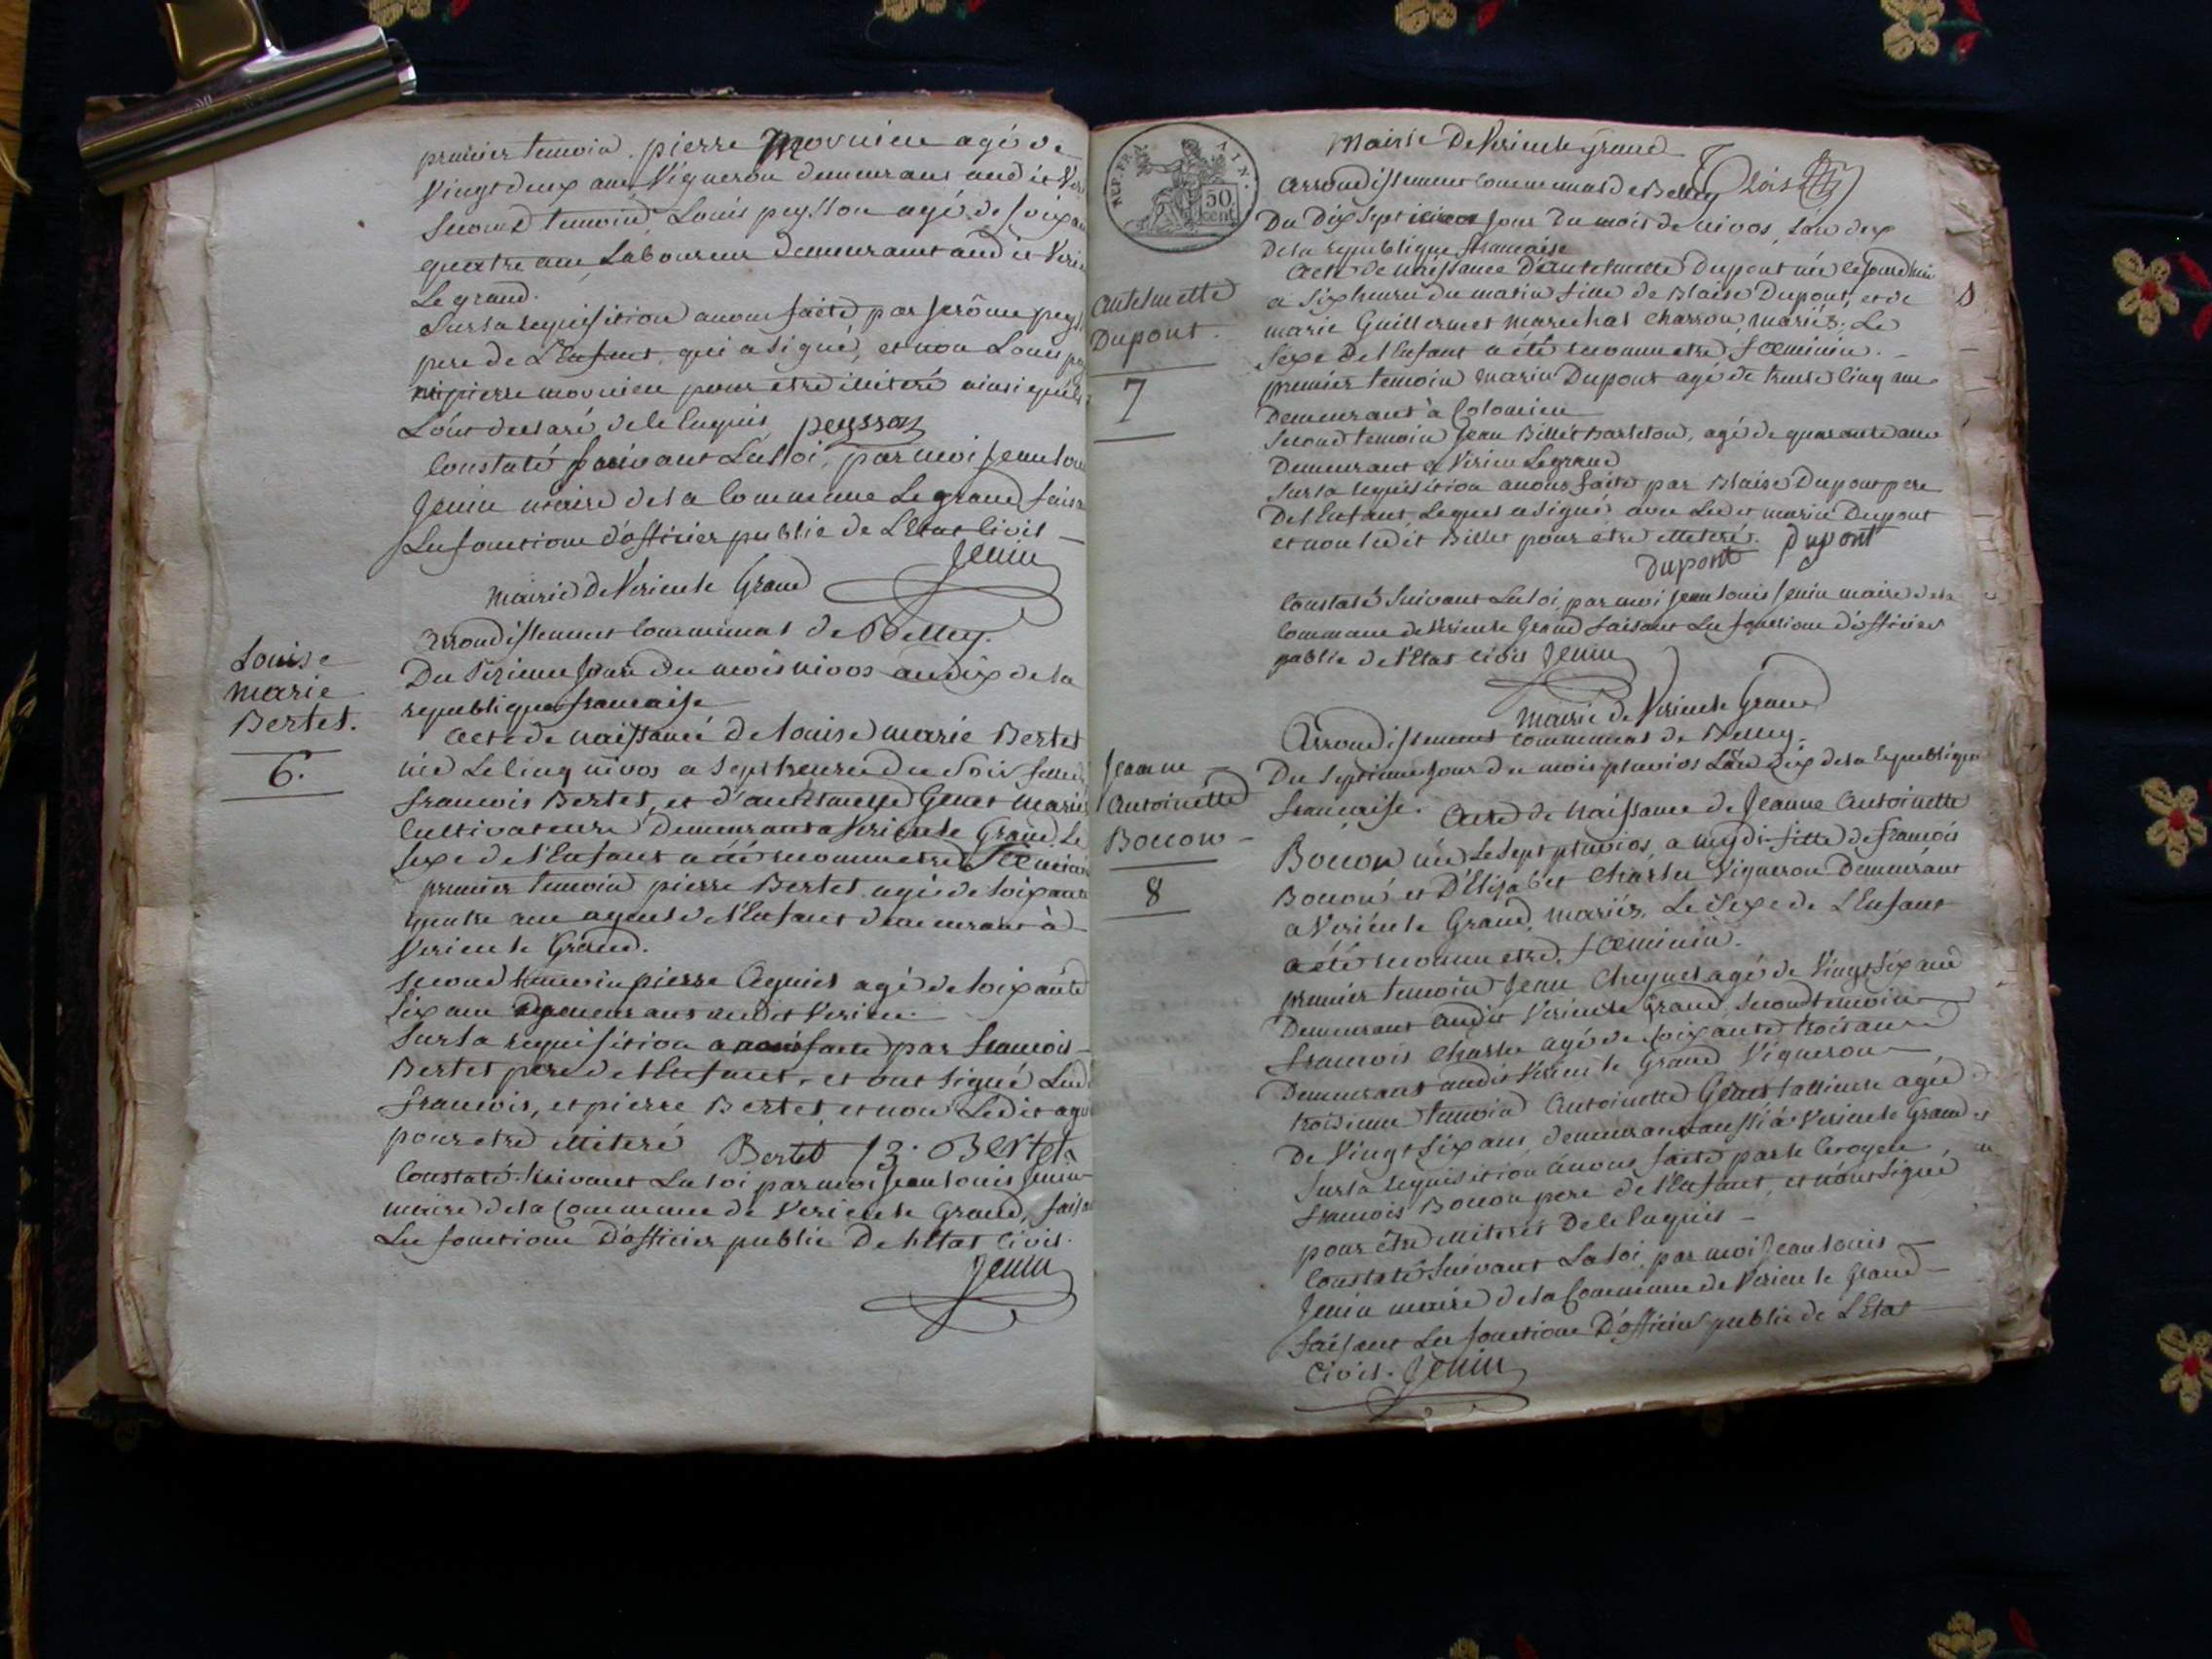 premier temoin pierre Movnieu agé de
Vingt deux ans Vigneron demeurant audit Viri
Second temoin Louis peysson agé de soixan
quatre ans Laboureur demeurant audit Virie
Le grand.
Sur la requisition a nous faite par Jerôme peys
pere de L'Enfant qui a signé, et non Louis pey
ni pierre movnieu pour etre illiteré ainsi qu'ils
L'ont declaré de le Enquis peysson
Constaté suivant La Loi, par moi Jean Lou
Jenin maire de la Commune Le grand faisa
Les fonctions d'officier public de L'Etat Civil
Jenin
Mairie De Virieu le Grand
Arrondissement Communal de Belley.
Louise
marie
Bertet.
6.
Du Sixieme Jour du mois nivos an dix de la
republique francaise
Acte de naissance de Louise marie Bertet
née Le Cinq nivos a Sept heures du Soir fille de
francois Bertet, et d'anthelmette Genet mariés
Cultivateurs Demeurant a Virieu le Grand. Le
Sexe de l'Enfant a été reconnu etre foeminin
premier temoin pierre Bertet agé de soixante
quatre ans ayeul de l'Enfant demeurant à
Virieu le Grand.
Second temoin pierre Aguiet agé de soixante
Six ans demeurant audit Virieu.
Sur la requisition a nous faite par francois
Bertet pere de l'Enfant, et ont signé Led
francois, et pierre Bertet et non Ledit agu
pour etre illiteré Bertet p. Bertet
Constaté Suivant La Loi par moi Jean Louis Jenin
maire de la Commune de Virieu le Grand, faisa
Les fonctions D'officier public De l'Etat Civil.
Jenin
REP. FRA. AIN.
50 cent
Mairie De Virieu le grand
Arrondissement Communal de Belley
Du Dix Septieme Jour Du mois de nivos, L'an dix
De la republique francaise
Anthelmette
Dupont.
7
Acte de naissance D'anthelmette Dupont née cejourd'hui
a Six heures du matin fille de Blaise Dupont, et de
marie Guillermet marechal Charron, mariés. Le
Sexe De l'Enfant a été reconnu etre foeminin.
premier temoin marin Dupont agé de trente Cinq ans
Demeurant à Colomieu
Second temoin Jean Billet Barteton, agé de quarante ans
Demeurant a Virieu Legrand
Sur la requisition a nous faite par Blaise Dupont pere
De l'Enfant, Lequel a signé avec Ledit marin Dupont
et non ledit Billet pour etre illiteré. Dupont
Dupont
Constaté Suivant La loi, par moi Jean Louis Jenin maire de la
Commune de Virieu le Grand faisant Les fonctions d'officier
public de l'Etat Civil Jenin
Mairie de Virieu le Grand
Arrondissement Communal de Belley.
Jeanne
Antoinette
Bouvon
8
Du Septieme Jour du mois pluvios L'an Dix de la Republique
francaise. Acte de Naissance de Jeanne Antoinette
Bouvon née Le Sept pluvios, a mydi fille de francois
Bouvon et D'Elizabet Charlin Vigneron Demeurant
a Virieu le Grand, mariés, Le Sexe de L'Enfant
a été reconnu etre foeminin.
premier temoin Jean Chuynet agé de Vingt Six ans
Demeurant audit Virieu le Grand, second temoin
francois Charlin agé de soixante trois ans
Demeurant audit Virieu le Grand Vigneron
troisieme temoin Antoinette Genet tallieuse agée
De Vingt Six ans, demeurant aussi à Virieu le Grand
Sur la requisition a nous faite par le Citoyen
francois Bouvon pere de l'Enfant, et n'ont signé
pour être illiterés De le Enquis
Constaté Suivant La loi, par moi Jean Louis
Jenin maire de la Commune de Virieu le Grand
faisant Les fonctions D'officier public de L'Etat
Civil. Jenin